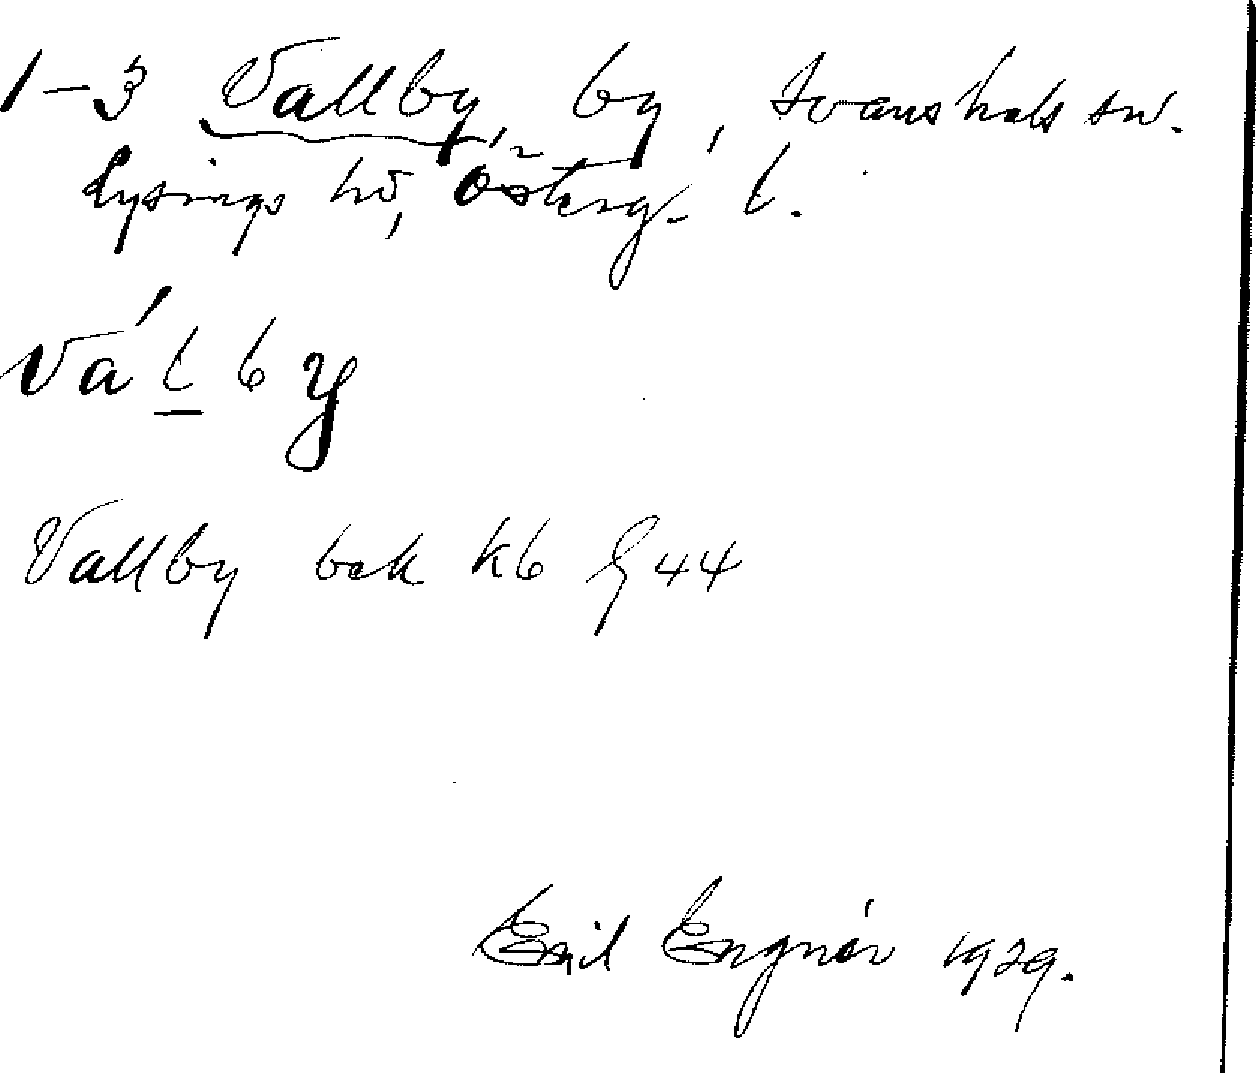 1-3 Vallby, by, Svanshals sn.
Lysings hd, Österg. l.
vá l b y
Vallby bok kb G 44
Emil Engnér 1929.